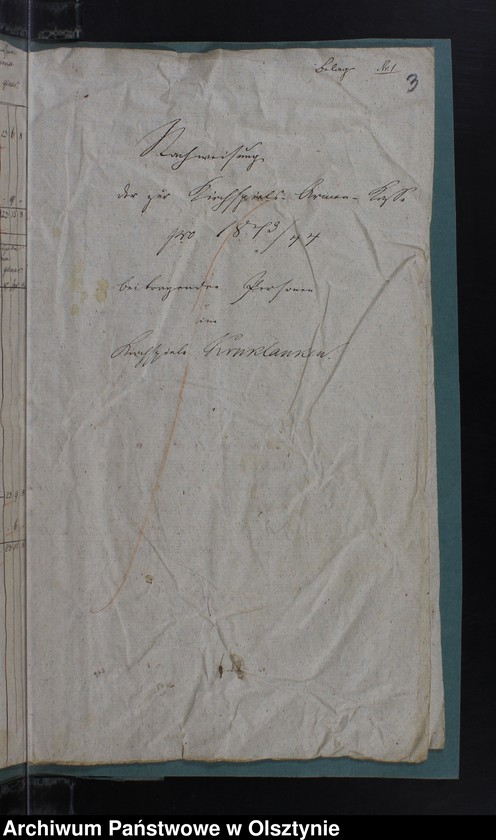 Belag Nr. 1
3
Nachweisung
der zur Kirchspiels-Armen-Kasse
pro 18 43/44
beitragenden Personen
im
Kirchspiele Kruklanken.
Archiwum Państwowe w Olsztynie